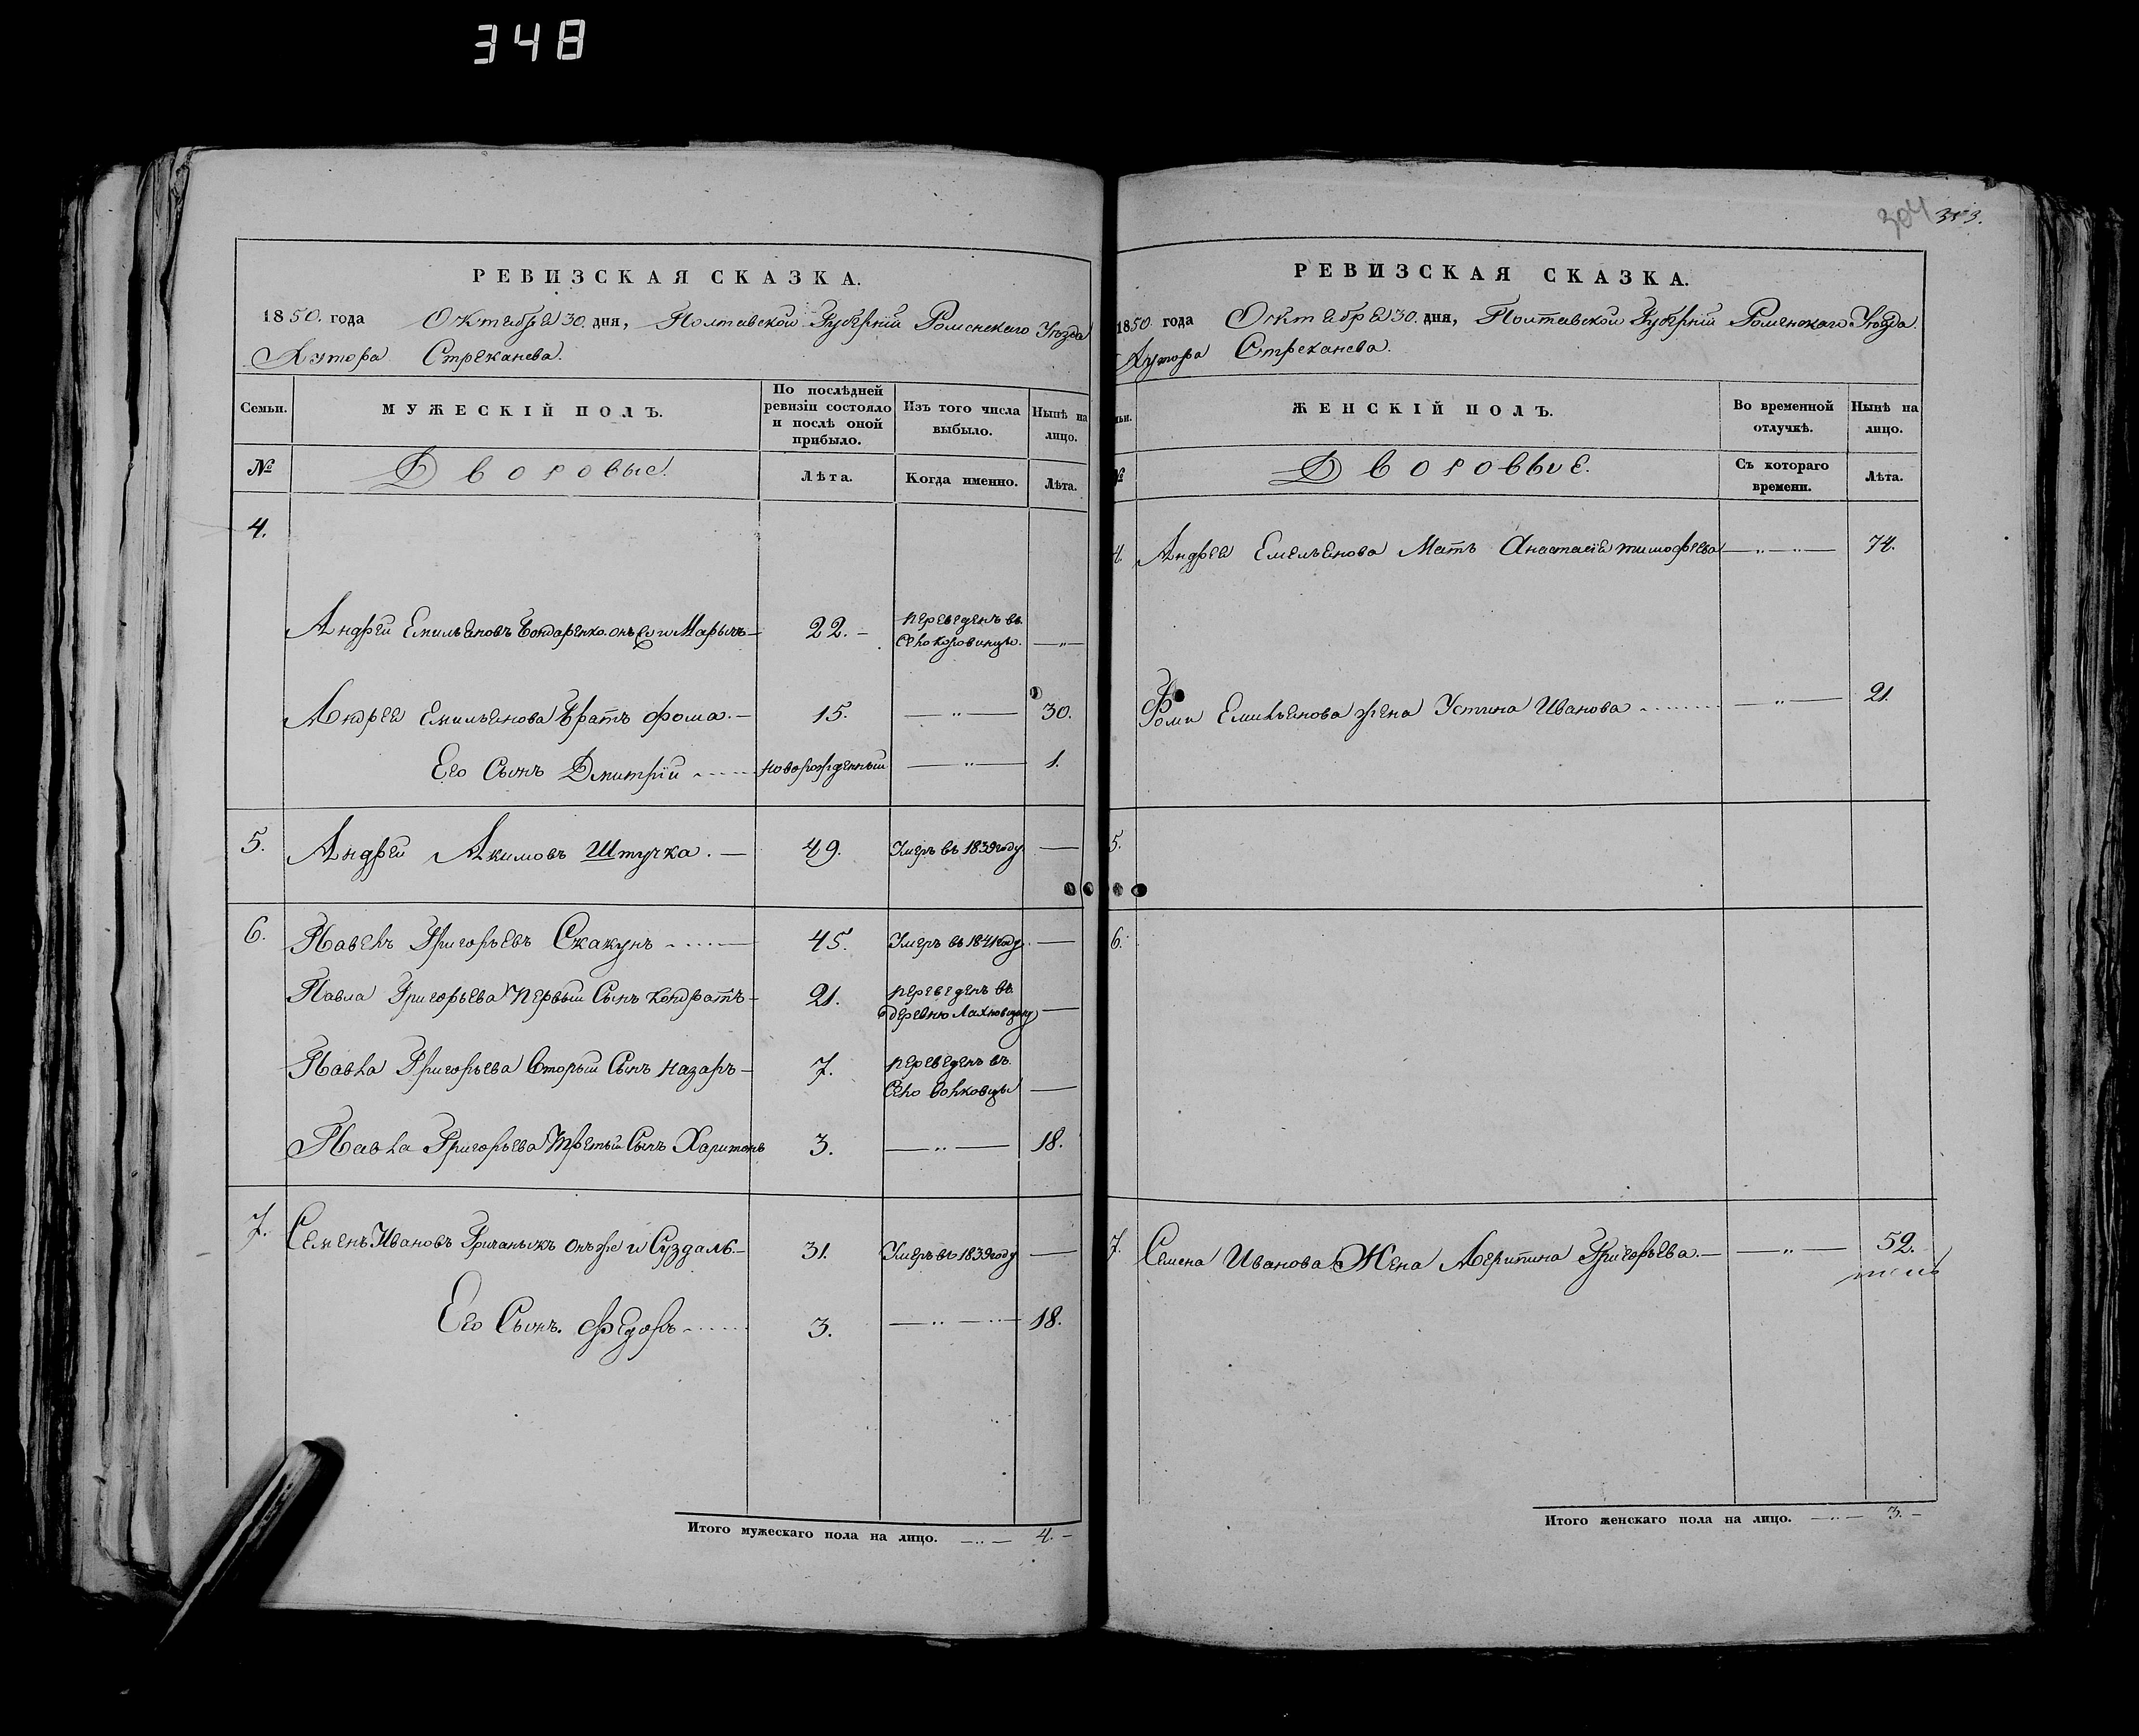 348
304 313.
РЕВИЗСКАЯ СКАЗКА.
1850. года Октября 30. дня, Полтавской Губерніи Роменскаго Уѣзда
Хутора Стреканева.
Семьи. МУЖЕСКІЙ ПОЛЪ. По послѣдней ревизіи состояло и послѣ оной прибыло. Изъ того числа выбыло. Нынѣ на лицо.
№ Дворовые. Лѣта. Когда именно. Лѣта.
4.
Андрей Емильяновъ Бондаренко. онъ же и 22. – переведенъ въ
Село Коровинцы. — „ —
Андрея Емильянова Братъ Фома. – 15. — „ — 30.
Его Сынъ Дмитрій новорожденный — „ — 1.
5. Андрей Акимовъ Штучка. — 49. Умеръ въ 1839 году —
6. Павелъ Григорьевъ Скакунъ 45. Умеръ въ 1841 году. —
Павла Григорьева Первый Сынъ Кондратъ – 21. переведенъ въ
деревню —
Павла Григорьева Вторый Сынъ Назаръ – 7. переведенъ въ
Село Волковцы —
Павла Григорьева Третый Сынъ Харитонъ 3. — „ — 18.
7. Семенъ Ивановъ онъ же и Суздаль – 31. Умеръ въ 1839 году —
Его Сынъ. Федоръ 3. — „ — 18.
Итого мужескаго пола на лицо. 4. –
РЕВИЗСКАЯ СКАЗКА.
1850 года Октября 30. дня, Полтавской Губерніи Роменскаго Уѣзда.
Хутора Стреканева.
ьи. ЖЕНСКІЙ ПОЛЪ. Во временной отлучкѣ. Нынѣ на лицо.
№ Дворовые. Съ котораго времени. Лѣта.
4. Андрея Емельянова Мать Анастасія Тимофеева — „ — 74.
Фомы Емильянова жена Устина Иванова — „ — 21.
5.
6.
7. Семена Иванова Жена Григорьева. — — „ — 52.
Итого женскаго пола на лицо. 3. –